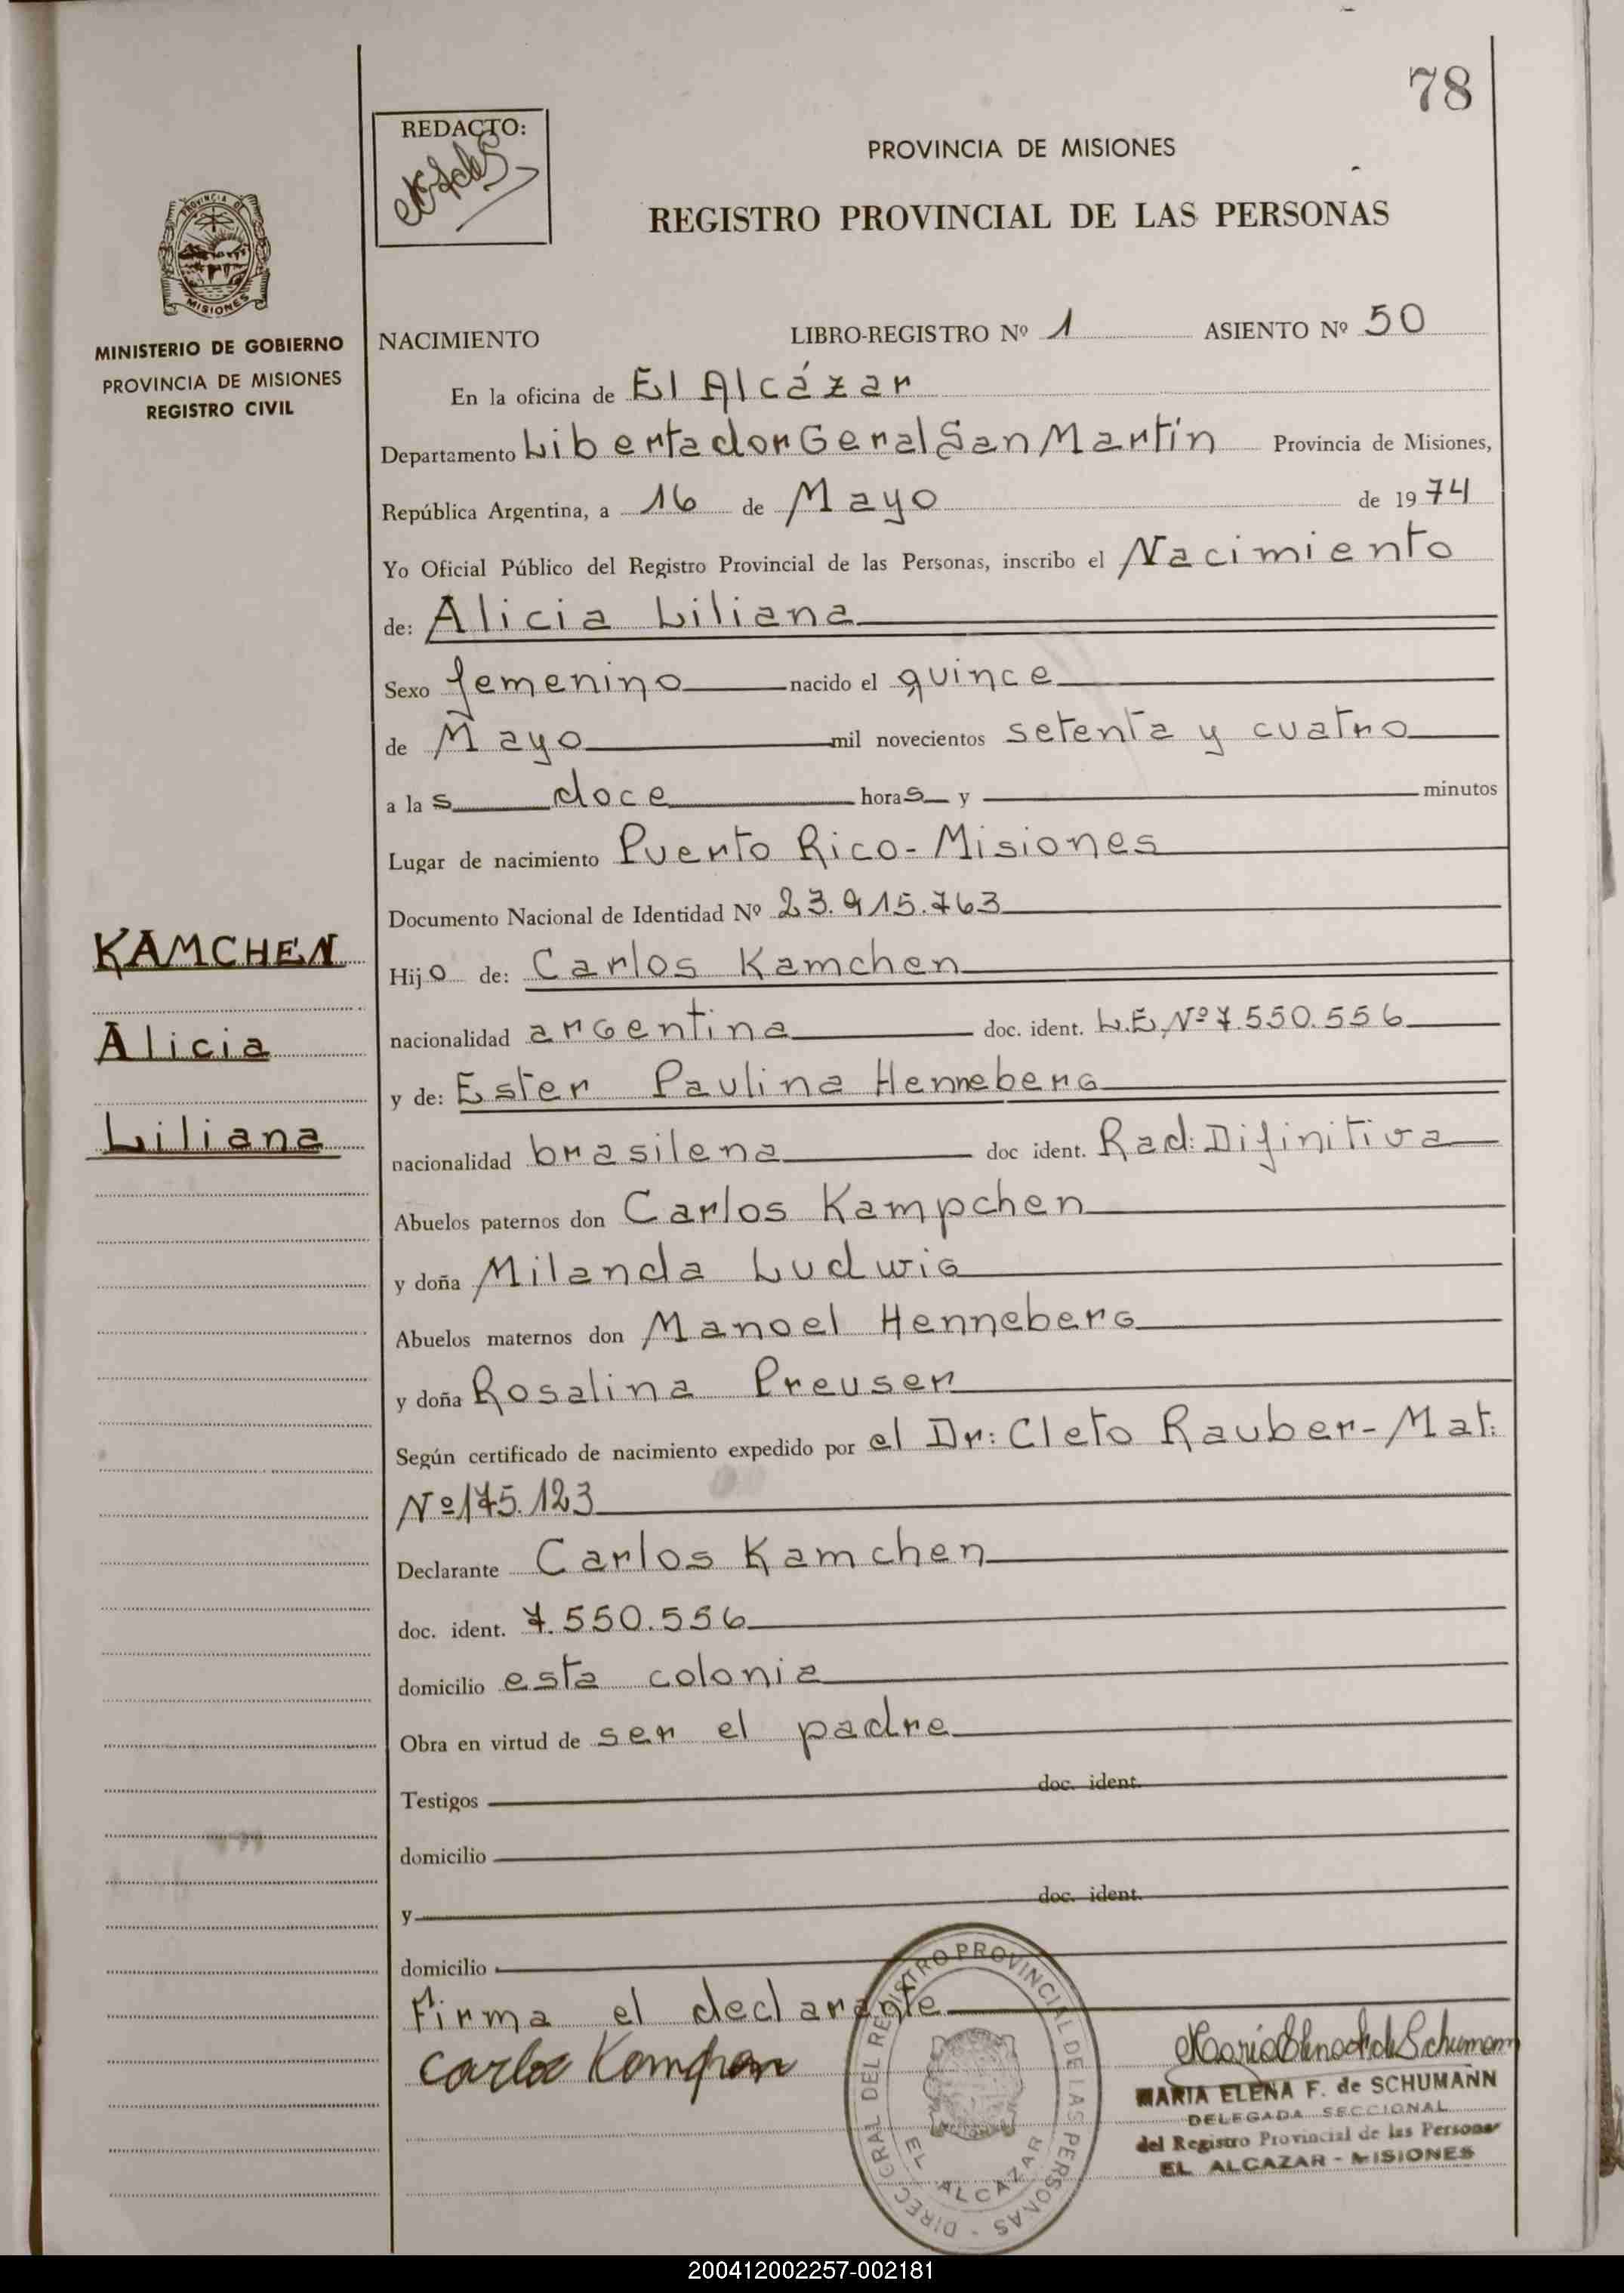 78
REDACTO:
PROVINCIA DE MISIONES
REGISTRO PROVINCIAL DE LAS PERSONAS
PROVINCIA DE
MISIONES
MINISTERIO DE GOBIERNO
PROVINCIA DE MISIONES
REGISTRO CIVIL
NACIMIENTO LIBRO-REGISTRO Nº 1 ASIENTO Nº 50
En la oficina de El Alcázar
Departamento Libertador Geral San Martín Provincia de Misiones,
República Argentina, a 16 de Mayo de 1974
Yo Oficial Público del Registro Provincial de las Personas, inscribo el Nacimiento
de: Alicia Liliana
Sexo femenino nacido el quince
de Mayo mil novecientos setenta y cuatro
a las doce horas y minutos
Lugar de nacimiento Puerto Rico - Misiones
Documento Nacional de Identidad Nº 23.915.763
KAMCHEN
Alicia
Liliana
Hijo de: Carlos Kamchen
nacionalidad argentina doc. ident. L.E. Nº 7.550.556
y de: Ester Paulina Henneberg
nacionalidad brasilena doc ident. Rad: Difinitiva
Abuelos paternos don Carlos Kampchen
y doña Milanda Ludwig
Abuelos maternos don Manoel Henneberg
y doña Rosalina Preuser
Según certificado de nacimiento expedido por el Dr: Cleto Rauber - Mat:
Nº 175.123
Declarante Carlos Kamchen
doc. ident. 7.550.556
domicilio esta colonia
Obra en virtud de ser el padre
Testigos doc. ident.
domicilio
y doc. ident.
domicilio
Firma el declarante
DIREC GRAL DEL REGISTRO PROVINCIAL DE LAS PERSONAS -
EL ALCAZAR
MARIA ELENA F. de SCHUMANN
DELEGADA SECCIONAL
del Registro Provincial de las Personas
EL ALCAZAR - MISIONES
200412002257-002181